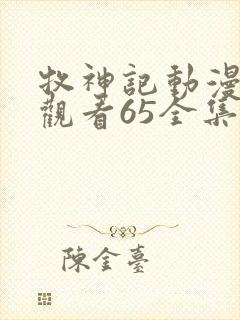 牧神記動漫
觀看65全集
陳金臺